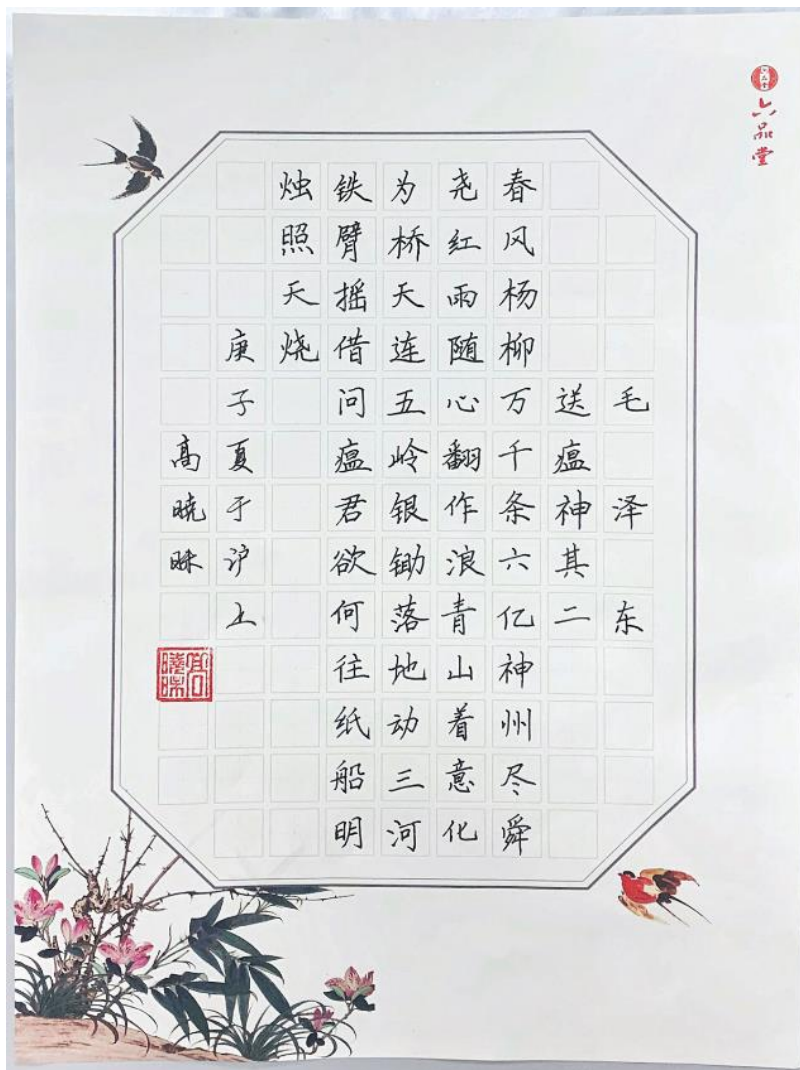 六品堂
毛泽东
送瘟神其二
春风杨柳万千条六亿神州尽舜
尧红雨随心翻作浪青山着意化
为桥天连五岭银锄落地动三河
铁臂摇借问瘟君欲何往纸船明
烛照天烧
庚子夏于沪上
高晓